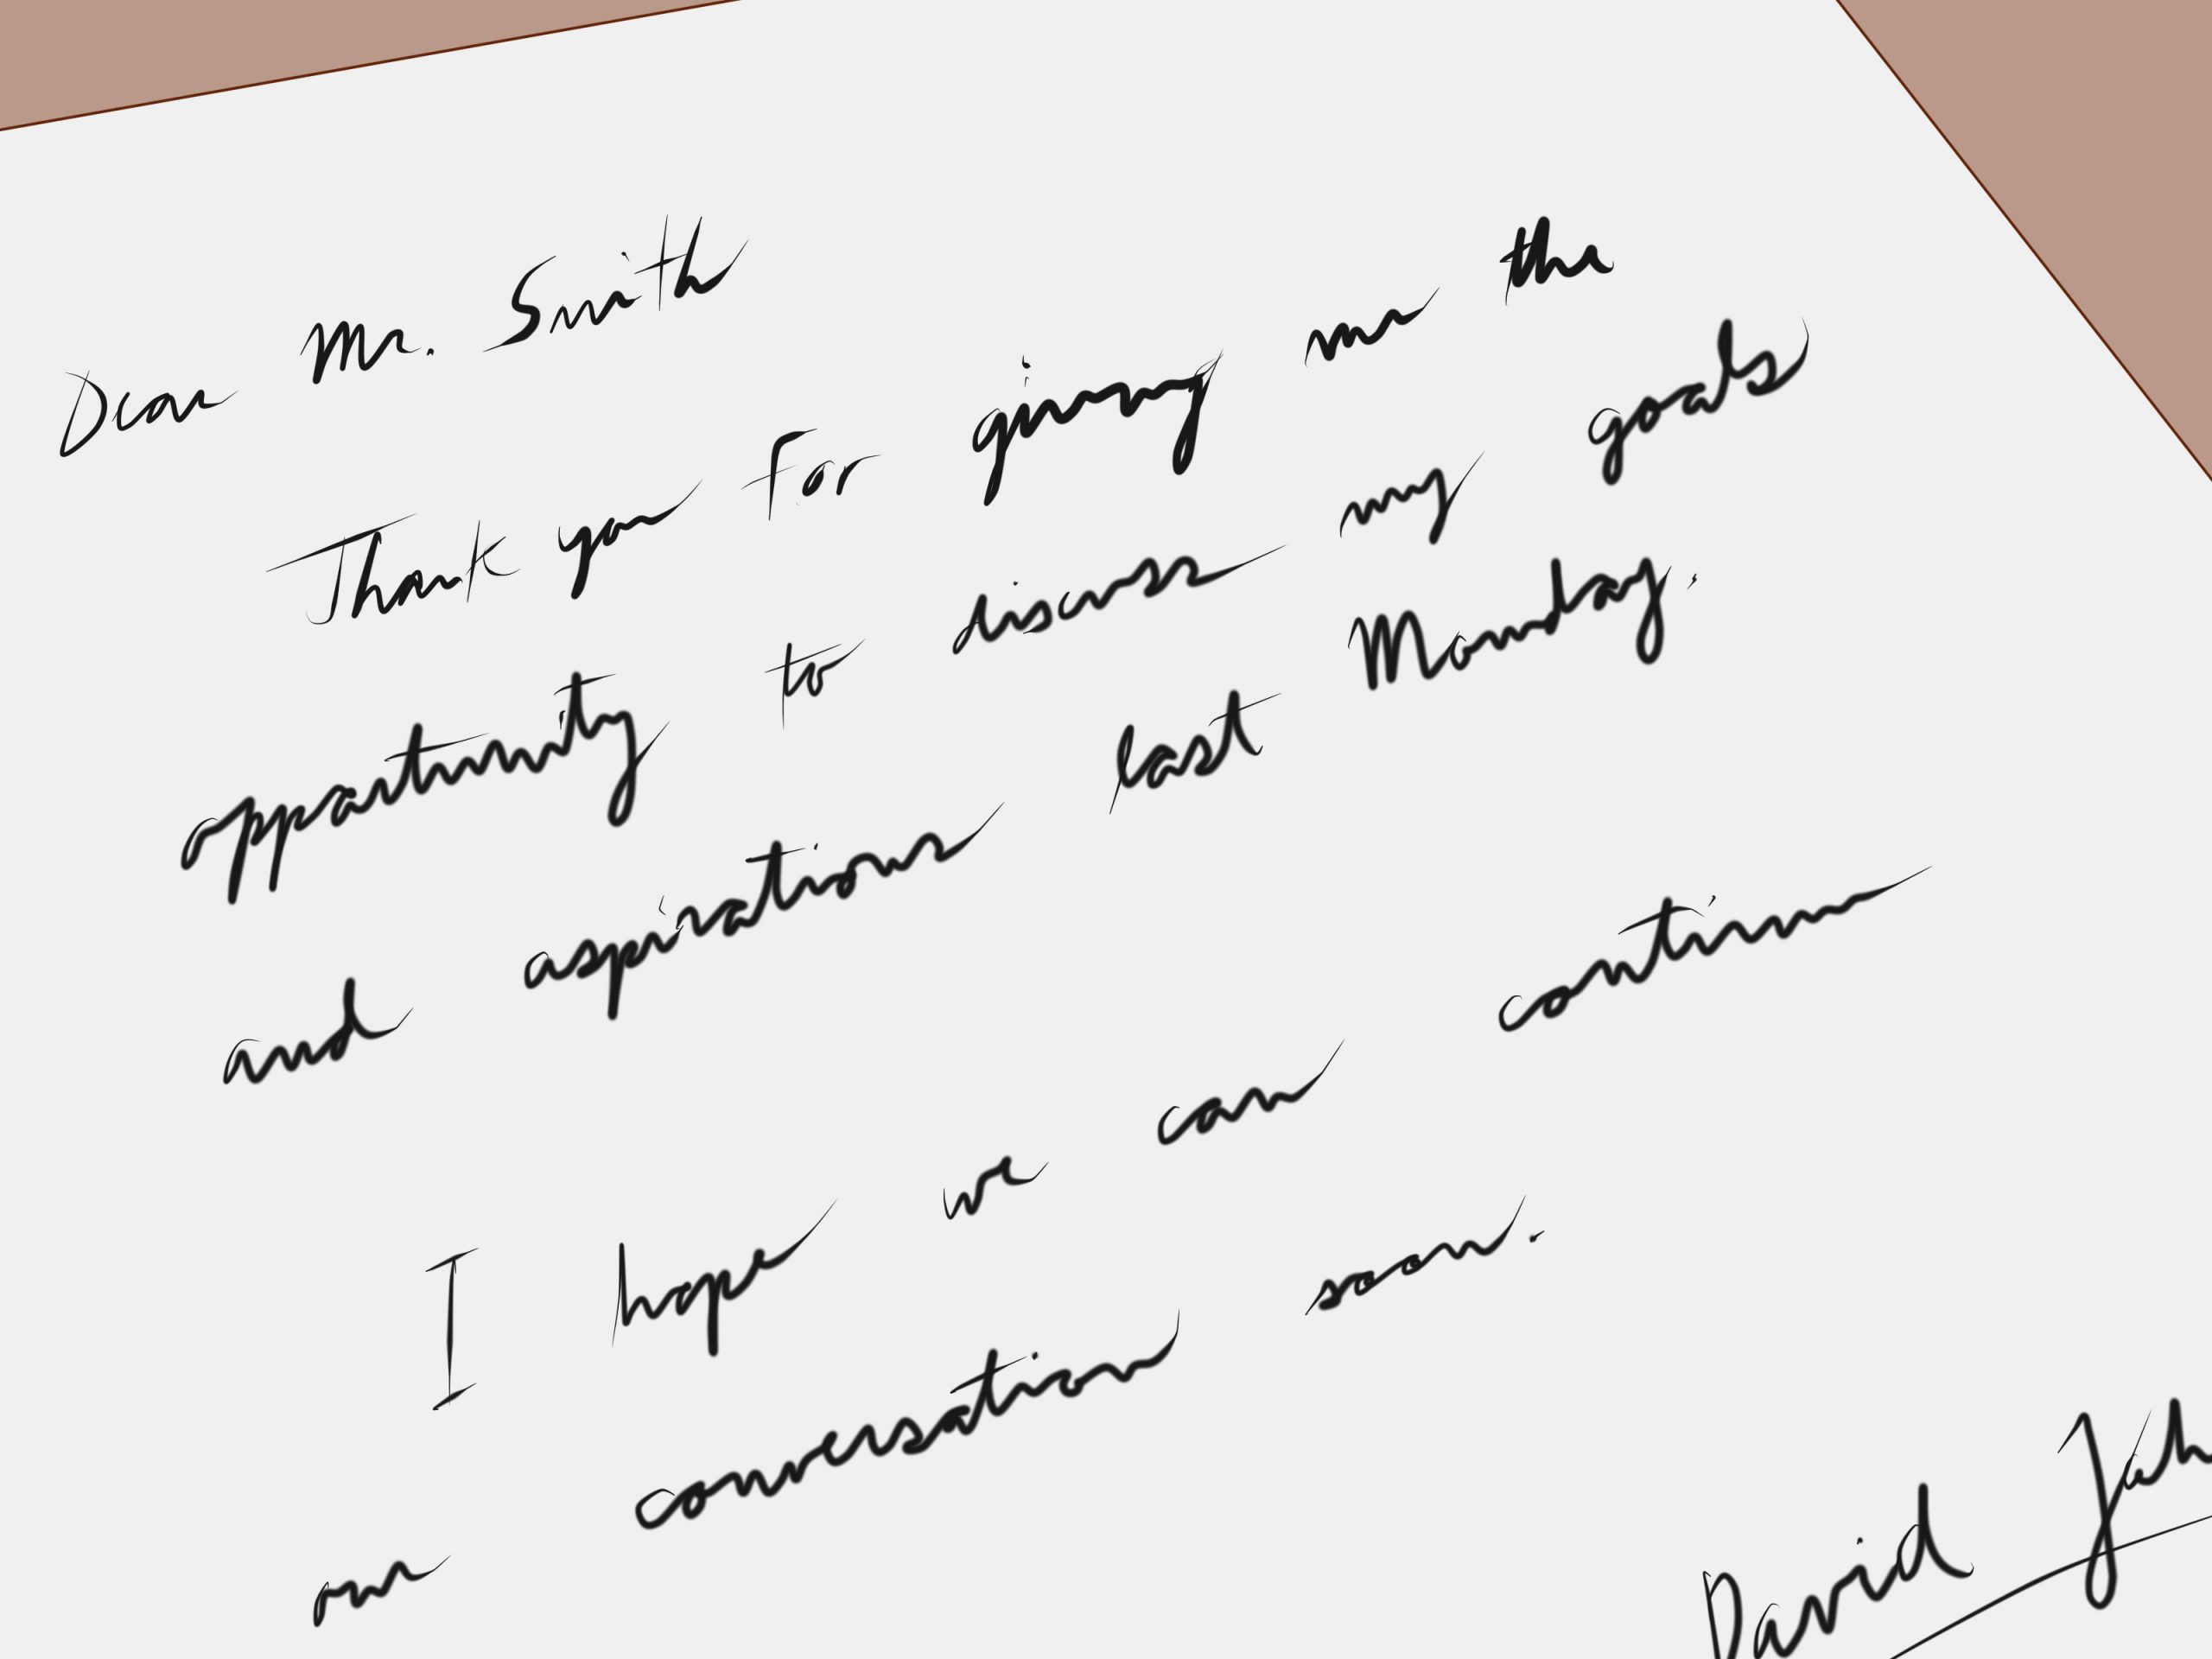 Dear Mr. Smith
Thank you for giving me the
opportunity to discuss my goals
and aspirations last Monday.
I hope we can continue
our conversation soon.
David Joh